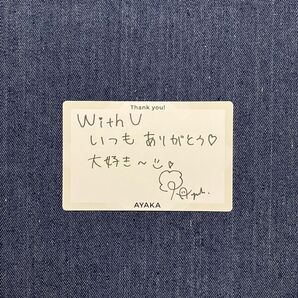 Thank you!
With U
いつも ありがとう♡
大好き〜
AYAKA